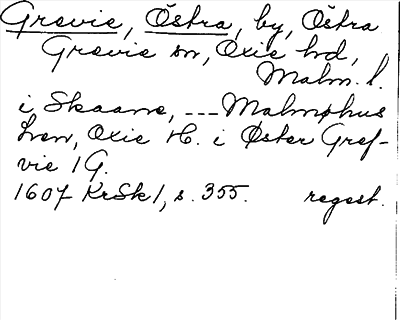 Grevie, Östra, by, Östra
Grevie sn, Oxie hd,
Malm. l.
i Skaane, --- Malmøhus
Len, Oxie H. i Øster Gref-
vie 1 G.
1607 KrSk 1, s. 355. regest.